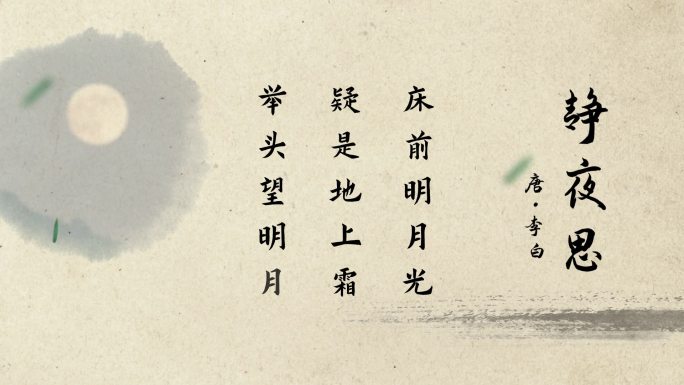 静夜思
唐·李白
床前明月光
疑是地上霜
举头望明月